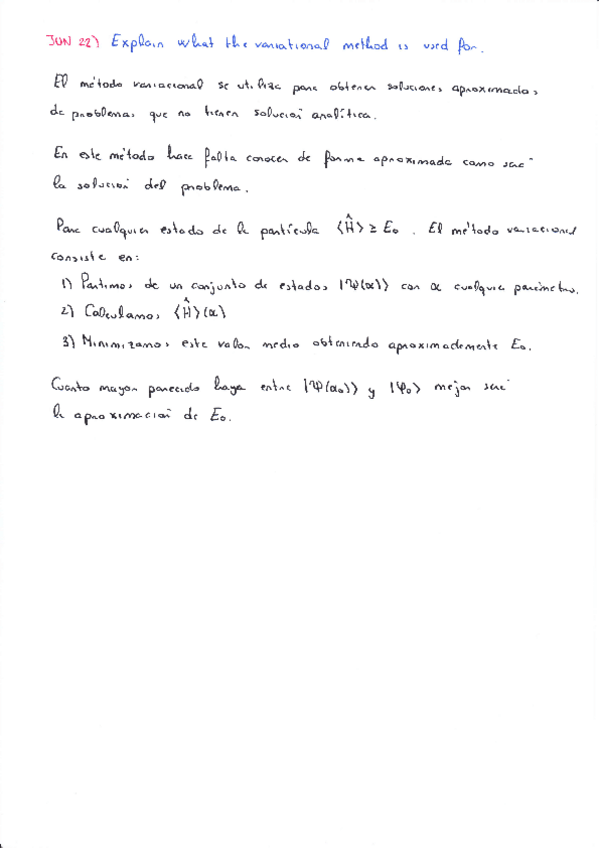 JUN 22) Explain what the variational method is used for.
El método variacional se utiliza para obtener soluciones aproximadas
de problemas que no tienen solución analítica.
En este método hace falta conocer de forma aproximada como será
la solución del problema.
Para cualquier estado de la partícula ⟨Ĥ⟩ ≥ E₀. El método variacional
consiste en:
1) Partimos de un conjunto de estados |Ψ(α)⟩ con α cualquier parámetro.
2) Calculamos ⟨Ĥ⟩(α)
3) Minimizamos este valor medio obteniendo aproximadamente E₀.
Cuanto mayor parecido haya entre |Ψ(α₀)⟩ y |φ₀⟩ mejor será
la aproximación de E₀.